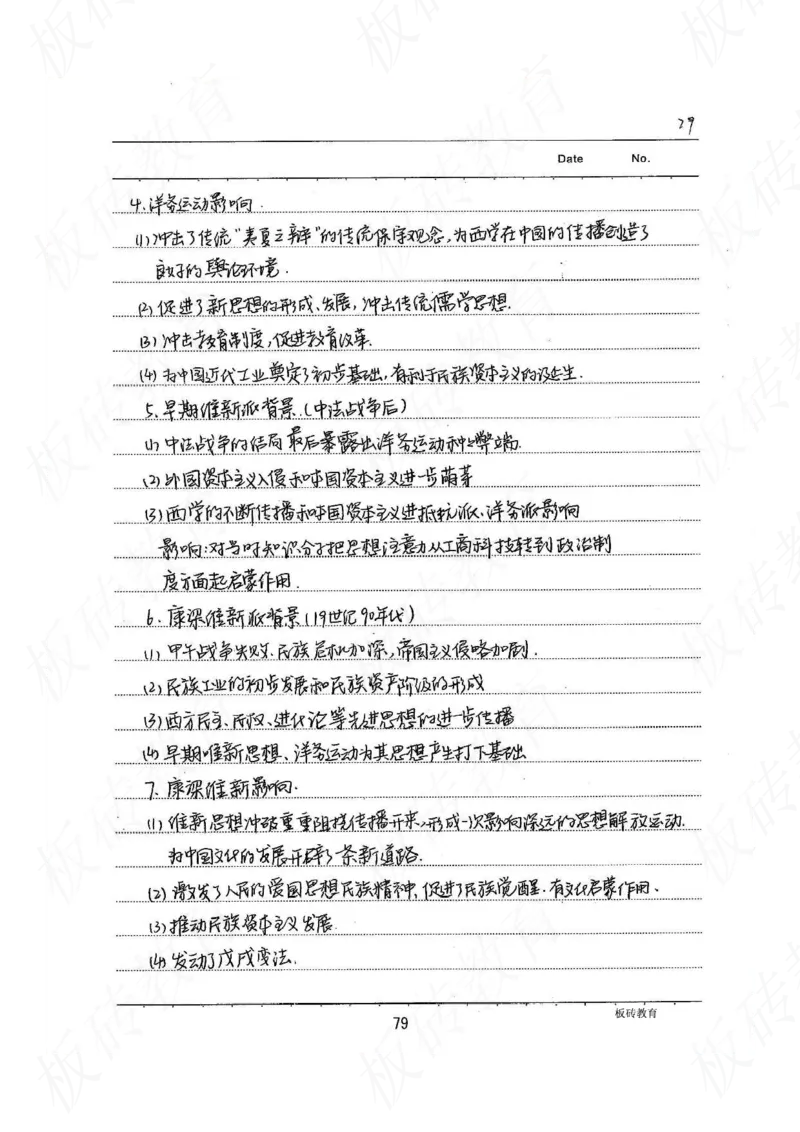 79
Date No.
4.洋务运动影响.
(1)冲击了传统"夷夏之辩"的传统保守观念,为西学在中国的传播创造了
良好的舆论环境.
(2)促进了新思想的形成、发展,冲击传统儒学思想.
(3)冲击教育制度,促进教育改革.
(4)为中国近代工业奠定了初步基础,有利于民族资本主义的诞生.
5.早期维新派背景.(中法战争后)
(1)中法战争的结局最后暴露出洋务运动种种弊端.
(2)外国资本主义入侵和中国资本主义进一步萌芽
(3)西学的不断传播和中国资本主义进抵抗派、洋务派影响
影响:对当时知识分子把思想注意力从工商科技转到政治制
度方面起启蒙作用.
6.康梁维新派背景(19世纪90年代)
(1)甲午战争失败.民族危机加深,帝国主义侵略加剧.
(2)民族工业的初步发展和民族资产阶级的形成
(3)西方民主、民权、进化论等先进思想的进一步传播
(4)早期维新思想、洋务运动为其思想产生打下基础
7.康梁维新影响.
(1)维新思想冲破重重阻挠传播开来,形成一次影响深远的思想解放运动.
为中国文化的发展开辟了条新道路.
(2)激发了人民的爱国思想民族精神,促进了民族觉醒.有文化启蒙作用.
(3)推动民族资本主义发展
(4)发动了戊戌变法.
79
板砖教育